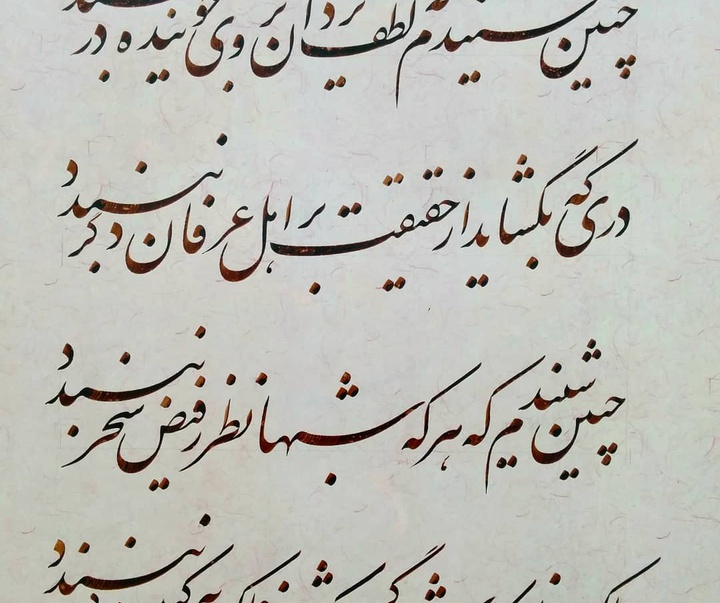 چنین شنیدم که لطف یزدان بروی جوینده در نبندد
دری که بگشاید از حقیقت بر اهل عرفان دگر نبندد
چنین شنیدم که هر که شبها نظر ز فیض سحر نبندد
نبندد